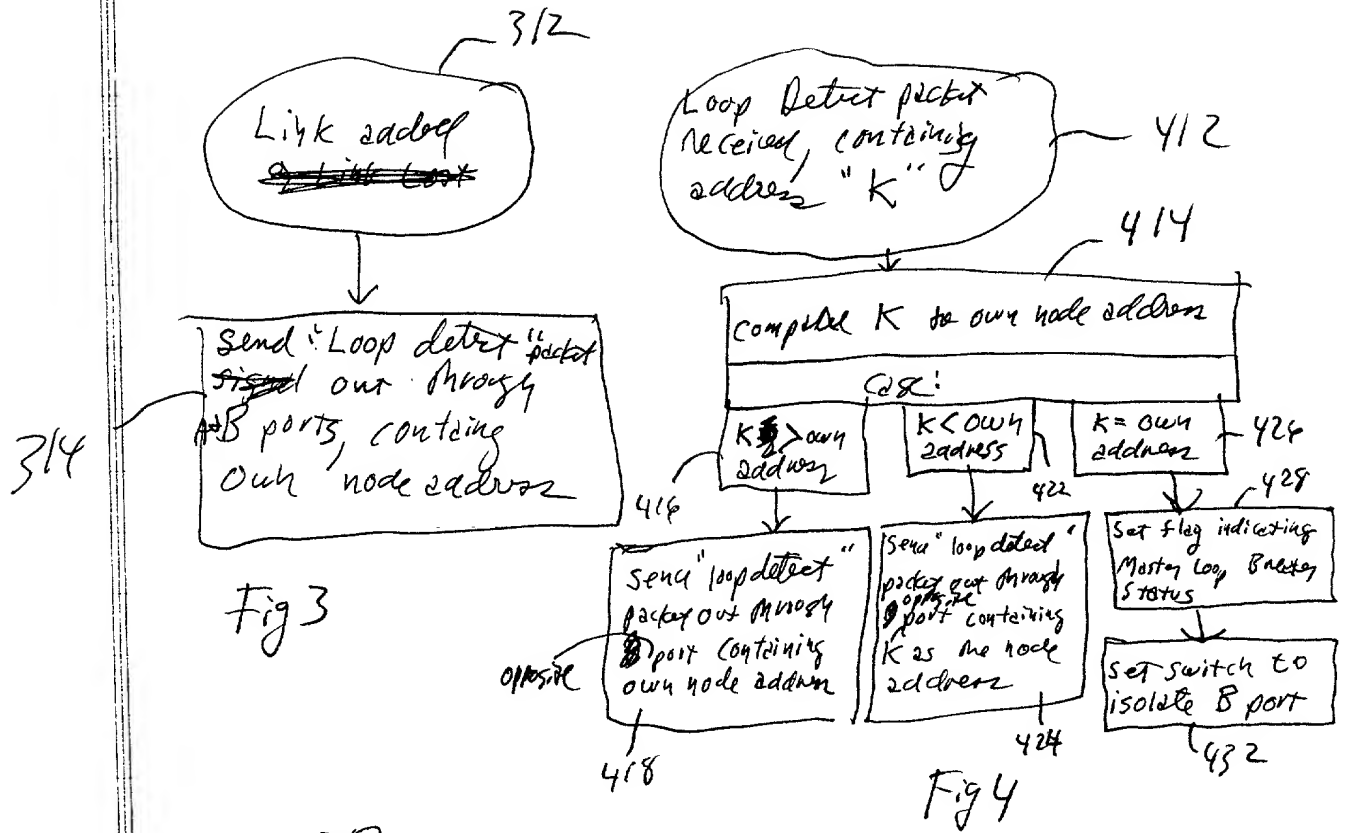 312
Link added
314
Send "Loop detect" packet
out through
A+B ports, containg
own node address
Fig 3
Loop Detect packet
received, containing
address "K"
412
414
Compared K to own node address
Case:
K > own
address
416
K < own
address
422
K = own
address
426
Send "loop detect"
packet out through
opposite
port containing
own node address
418
Send "loop detect"
packet out through
opposite
port containing
K as the node
address
424
428
Set flag indicating
Master Loop Breaker
Status
Set switch to
isolate B port
432
Fig 4